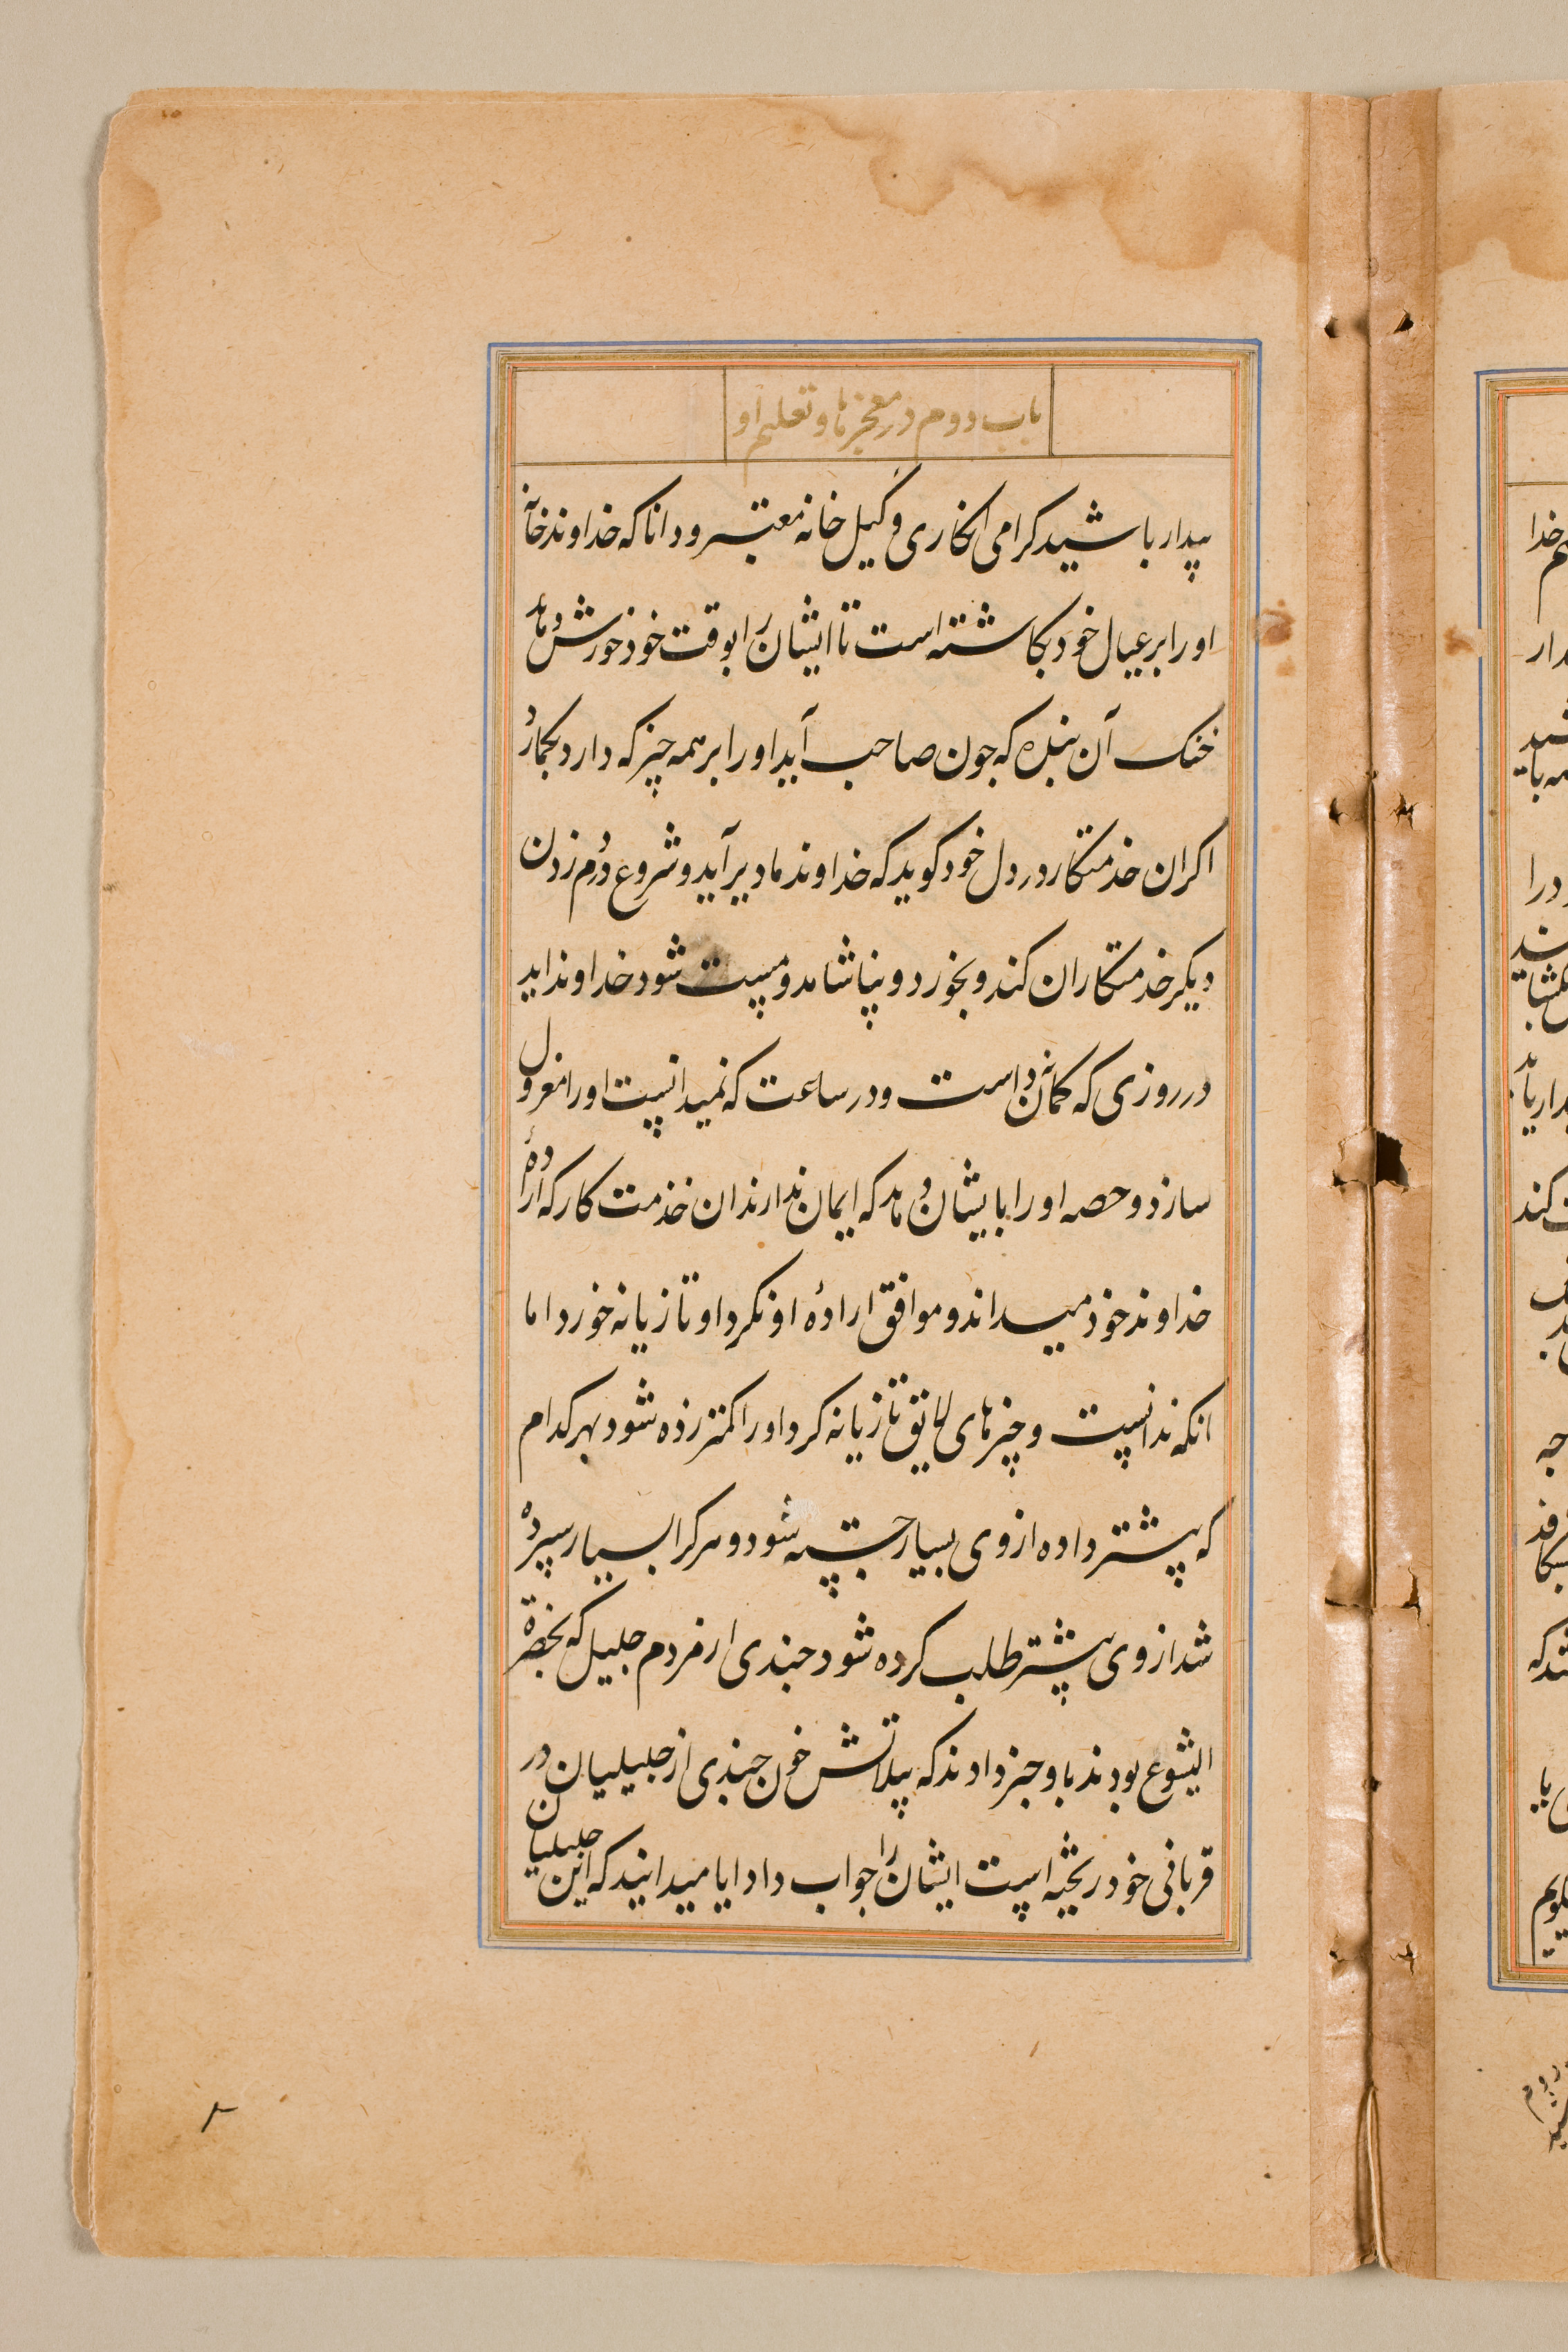 باب دوم در معجزها و تعلیم او
بیدار باشید کرامی انکاری وکیل خانه معتبر و دانا که خداوند خانه
او را بر عیال خود بکاشته است تا ایشان را بوقت خود خورش دهد
خنک آن بنده که چون صاحب آید او را بر همه چیز که دارد بکمارد
اکر ان خدمتکار در دل خود کوید که خداوند ما دیر آید و شروع در زدن
دیکر خدمتکاران کند و بخورد و بیاشامد و مست شود خداوند اید
در روزی که کمان داست و در ساعت که نمیدانست او را معزول
سازد و حصه او را بایشان دهد که ایمان ندارند ان خذمت کار که اراده
خداوند خود میداند و موافق ارادهٔ او نکرد او تازیانه خورد اما
انکه ندانست و چیزهای لایق تازیانه کرد او را کمتر زده شود بهر کدام
که بیشتر داده از وی بسیار جسته شود و هر کرا بسیار سپرده
شد از وی بیشتر طلب کرده شود چندی از مردم جلیل که بحضرة
الیشوع بودند باو خبر دادند که پیلاتش خون چندی از جلیلیان در
قربانی خود ریخته است ایشان را جواب داد ایا میدانید که این جلیلیان